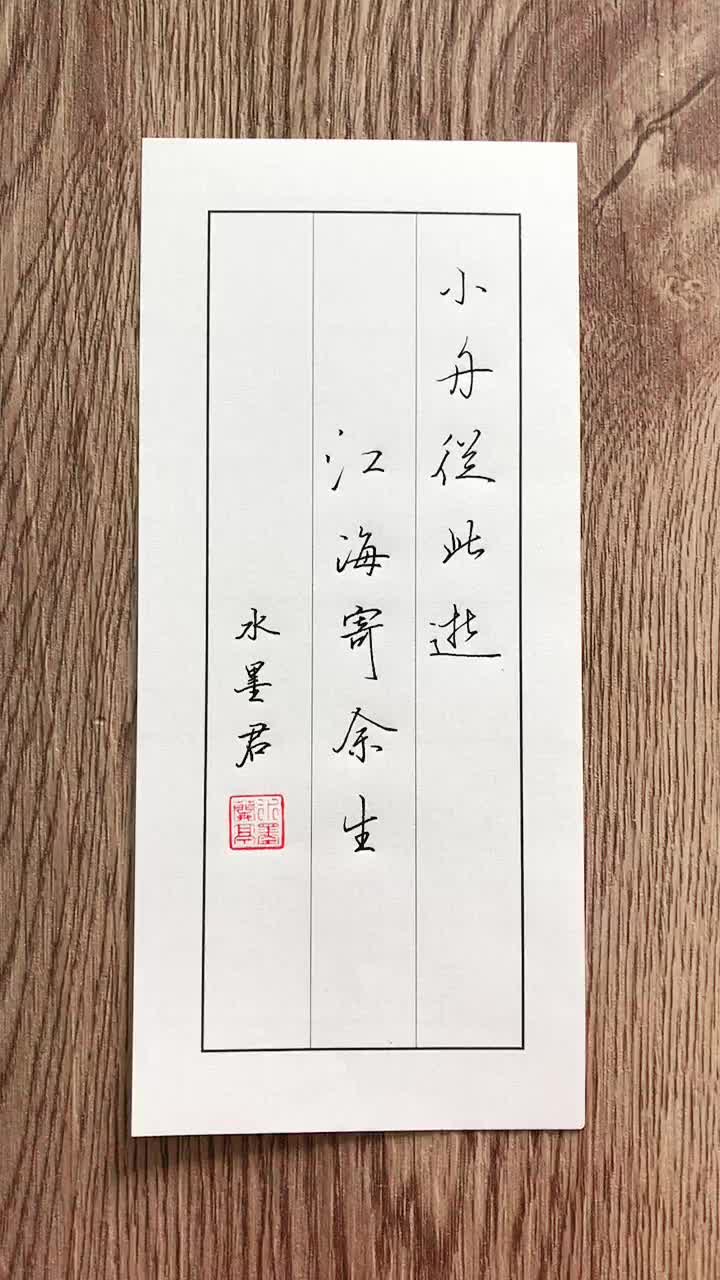 小舟從此逝
江海寄余生
水墨君